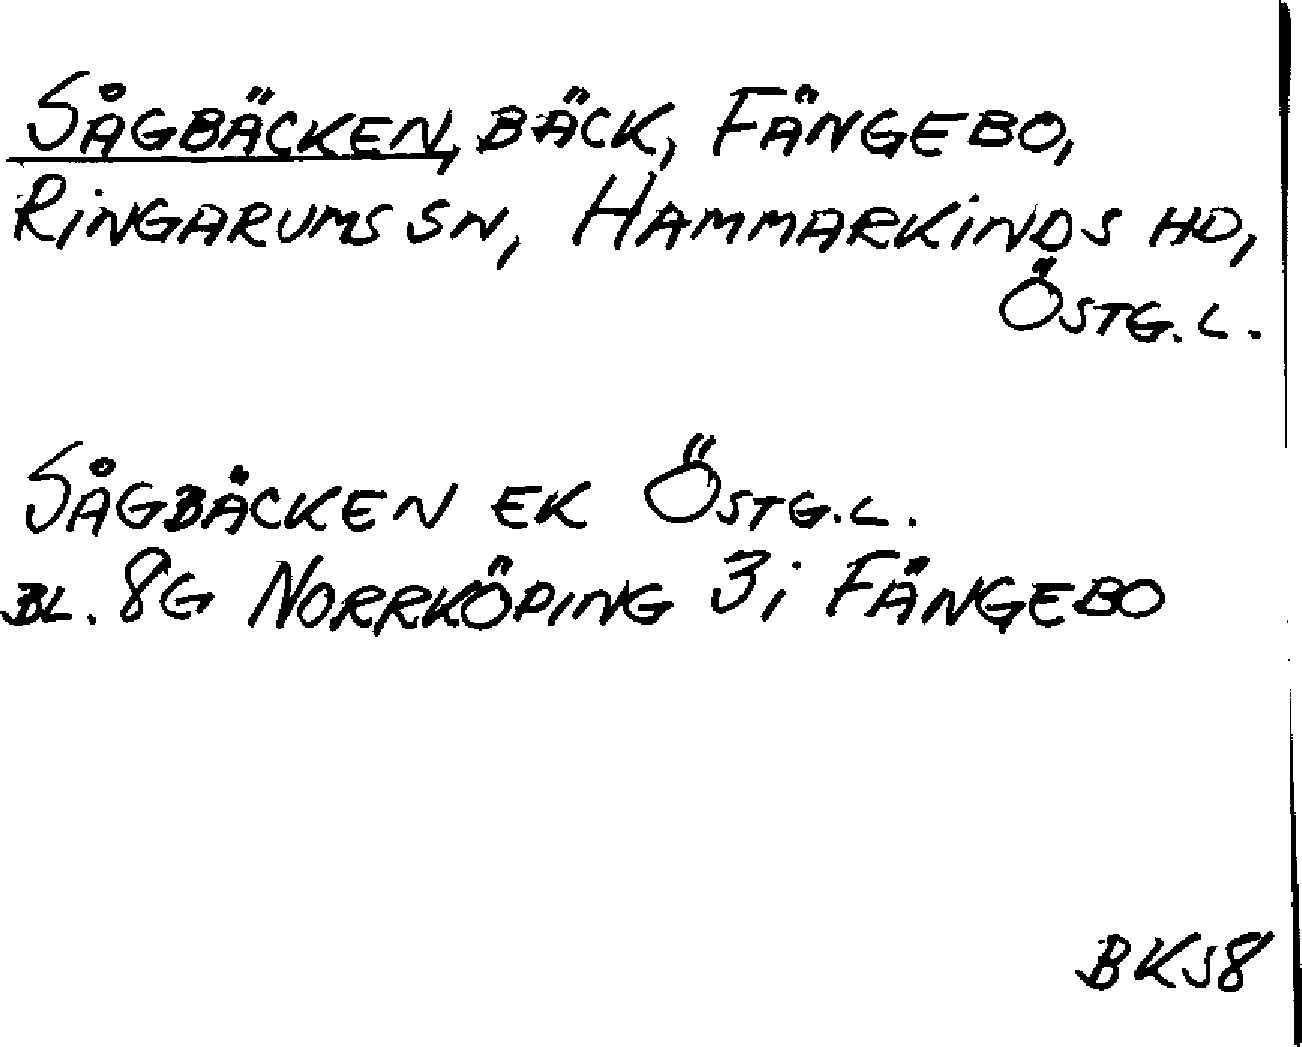 SÅGBÄCKEN, BÄCK, FÄNGEBO,
RINGARUMS SN, HAMMARKINDS HD,
ÖSTG.L.
SÅGBÄCKEN EK ÖSTG.L.
BL. 8G NORRKÖPING 3i FÄNGEBO
BKS8